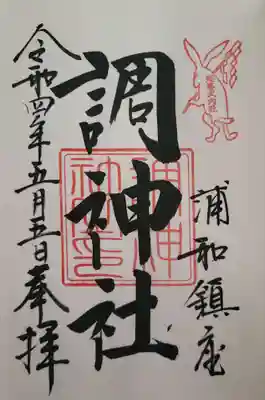 浦和鎮座
調神社
令和四年五月五日奉拝